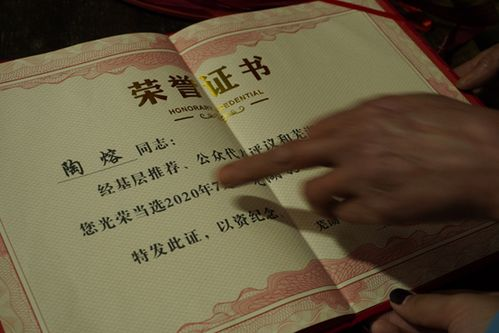 荣誉证书
HONORARY CREDENTIAL
陶熔同志:
经基层推荐、公众代表评议和芜湖
您光荣当选2020年7
特发此证,以资纪念。
芜湖